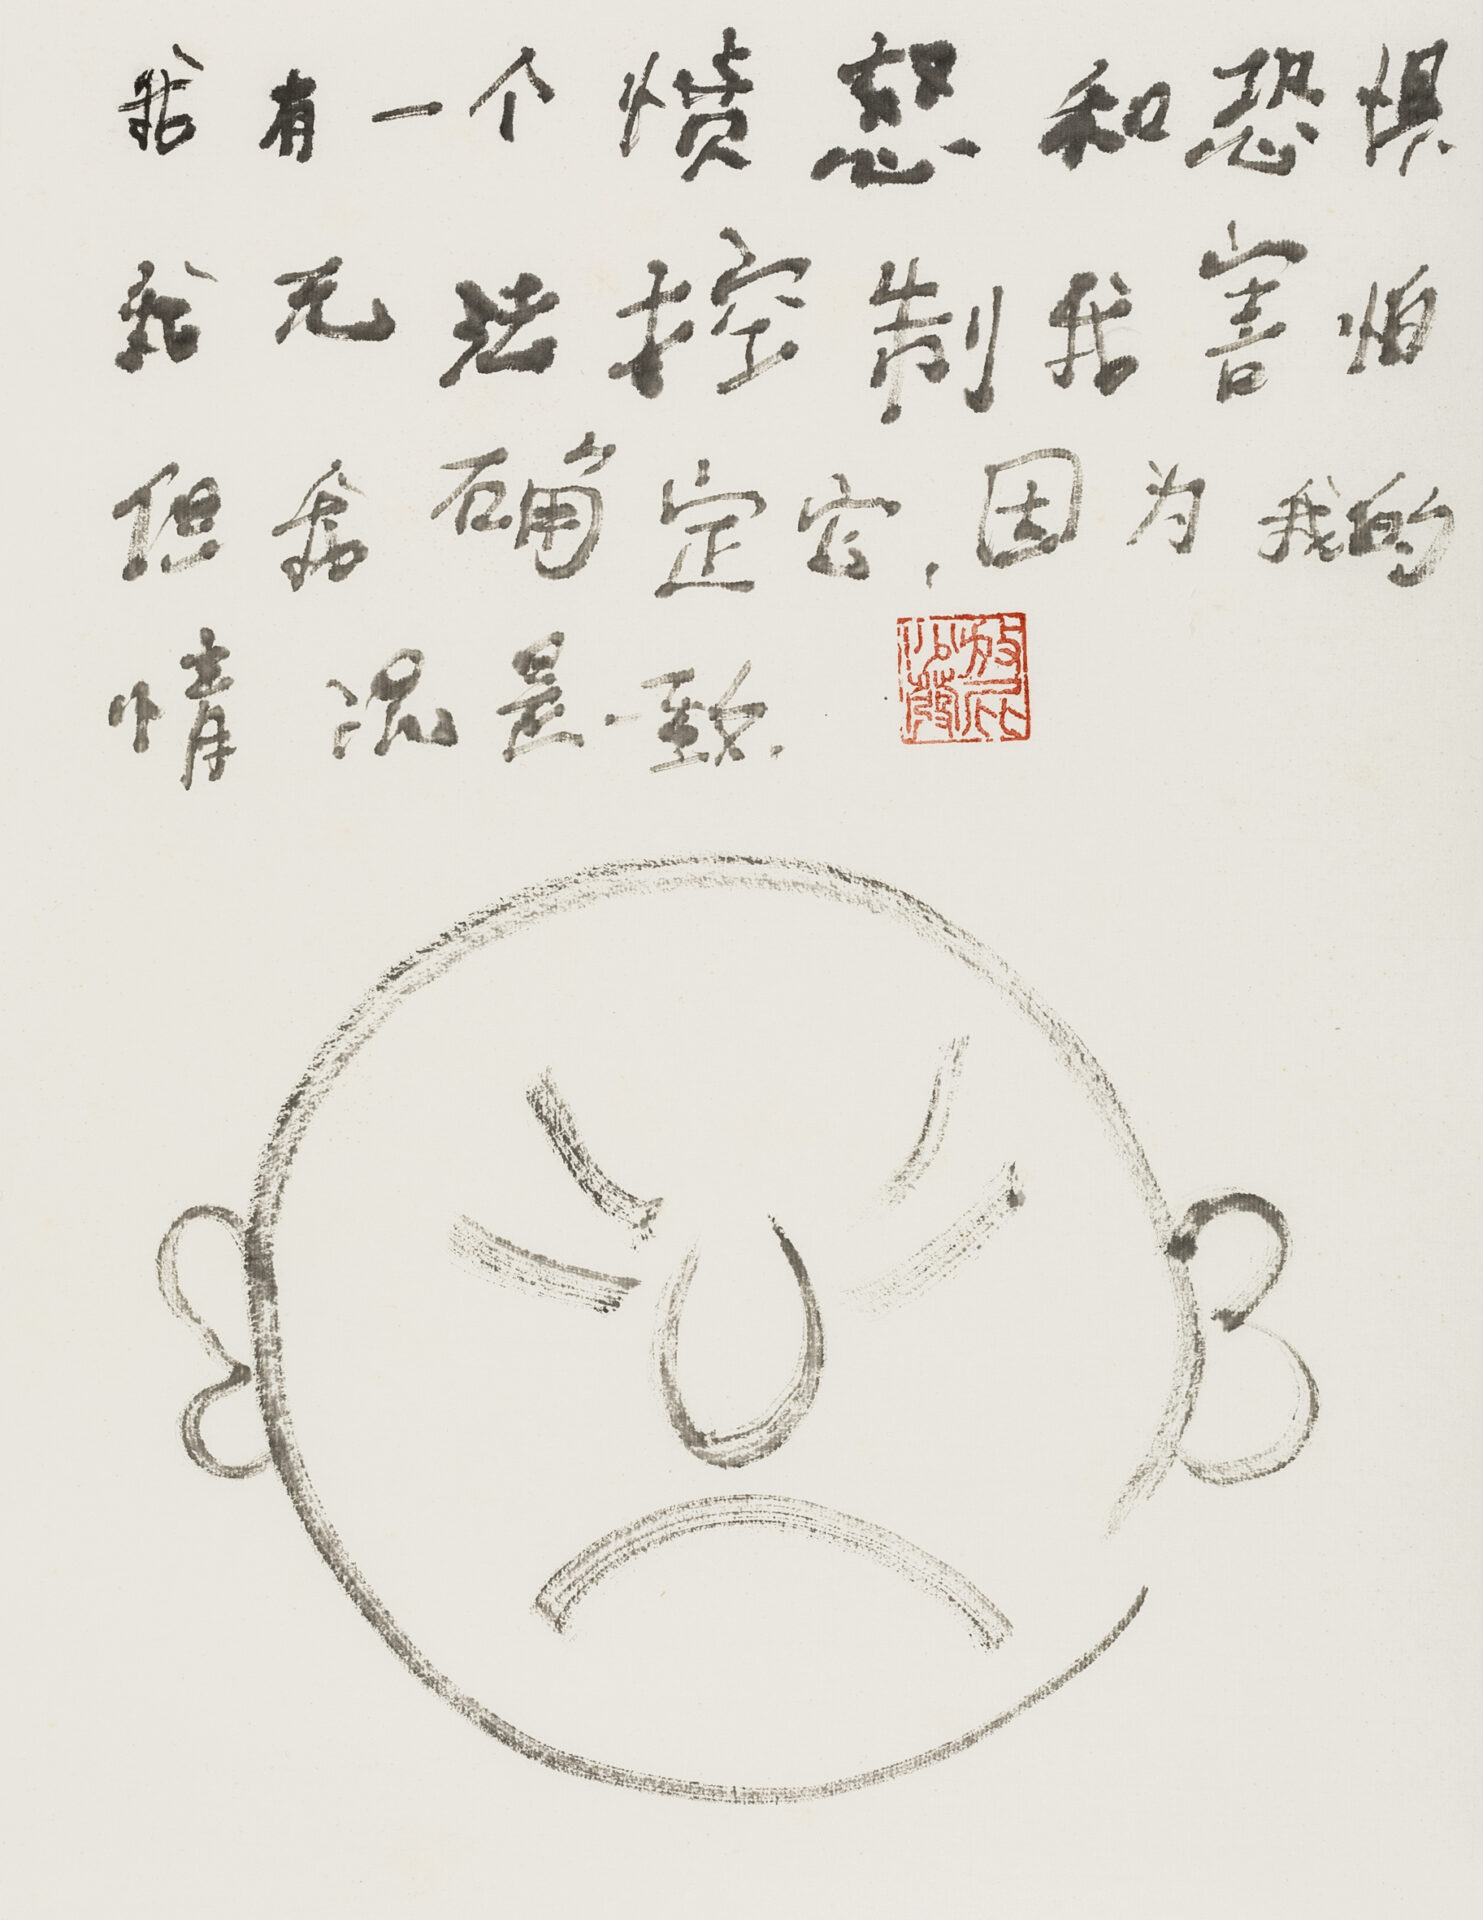 我有一个愤怒和恐惧
我无法控制我害怕
但确定它,因为我的
情况是一致.